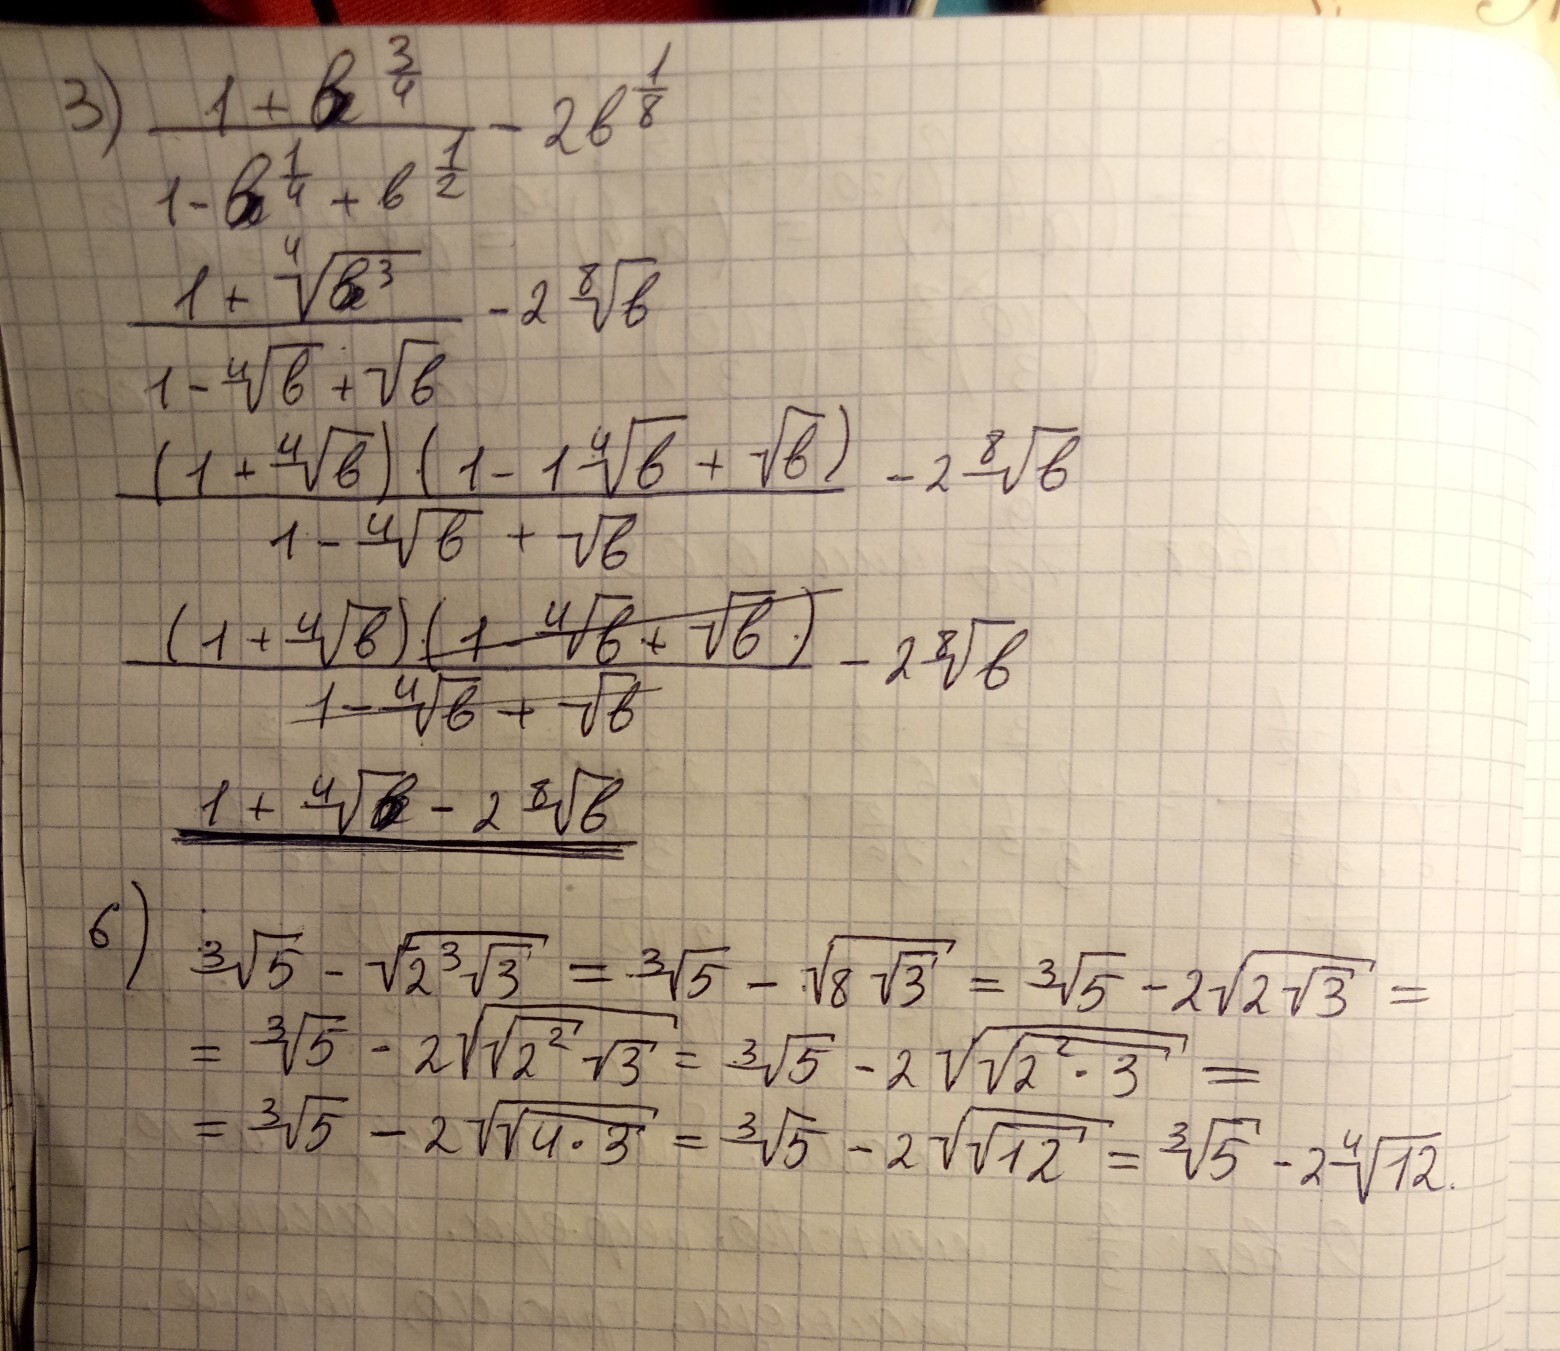 3) \frac{1 + в^{\frac{3}{4}}}{1 - в^{\frac{1}{4}} + в^{\frac{1}{2}}} - 2в^{\frac{1}{8}}
\frac{1 + \sqrt[4]{в^3}}{1 - \sqrt[4]{в} + \sqrt{в}} - 2\sqrt[8]{в}
\frac{(1 + \sqrt[4]{в})(1 - 1\sqrt[4]{в} + \sqrt{в})}{1 - \sqrt[4]{в} + \sqrt{в}} - 2\sqrt[8]{в}
\frac{(1 + \sqrt[4]{в})(1 - \sqrt[4]{в} + \sqrt{в})}{1 - \sqrt[4]{в} + \sqrt{в}} - 2\sqrt[8]{в}
1 + \sqrt[4]{в} - 2\sqrt[8]{в}
6) \sqrt[3]{5} - \sqrt{2^3\sqrt{3}} = \sqrt[3]{5} - \sqrt{8\sqrt{3}} = \sqrt[3]{5} - 2\sqrt{2\sqrt{3}} =
= \sqrt[3]{5} - 2\sqrt{\sqrt{2^2}\sqrt{3}} = \sqrt[3]{5} - 2\sqrt{\sqrt{2^2 \cdot 3}} =
= \sqrt[3]{5} - 2\sqrt{\sqrt{4 \cdot 3}} = \sqrt[3]{5} - 2\sqrt{\sqrt{12}} = \sqrt[3]{5} - 2\sqrt[4]{12}.